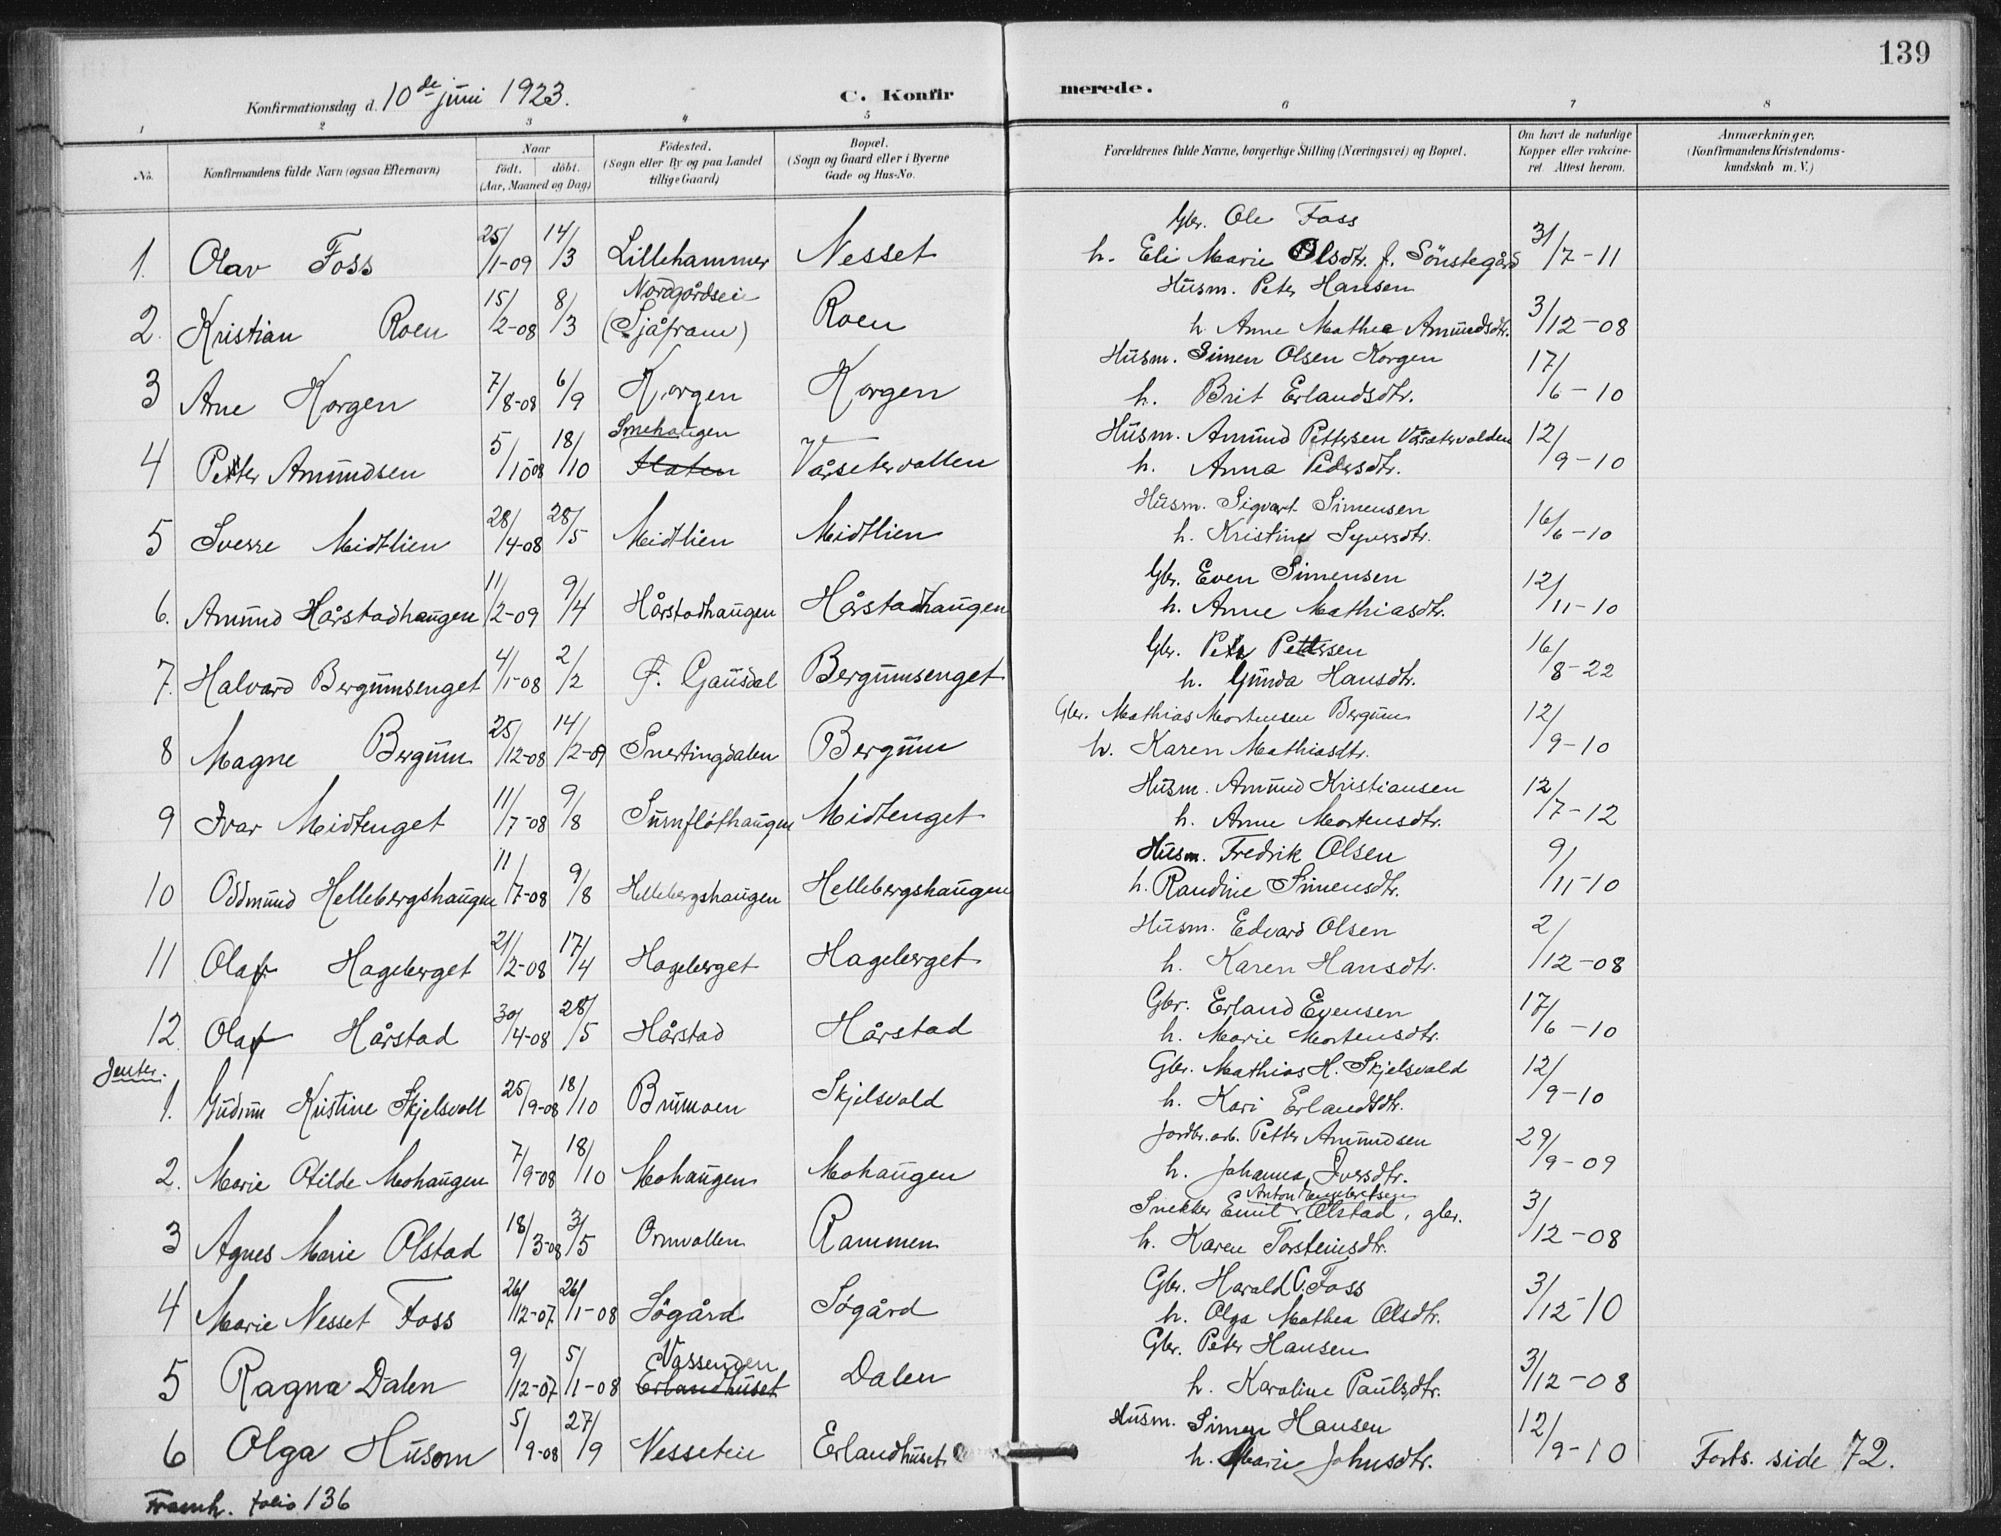 139
Konfirmationsdag d. 10de juni 1923. C. Konfirmerede.
1 2 3 4 5 6 7 8
No. Konfirmandens fulde Navn (ogsaa Efternavn) Naar født. døbt. (Aar, Maaned og Dag) Fødested. (Sogn eller By og paa Landet tillige Gaard) Bopæl. (Sogn og Gaard eller i Byerne Gade og Hus-No. Forældrenes fulde Navne, borgerlige Stilling (Næringsvei) og Bopæl. Om havt de naturlige Kopper eller vakcineret. Attest herom. Anmærkninger. (Konfirmandens Kristendomskundskab m. V.)
Gbr. Ole Foss
1. Olav Foss 25/1-09 14/3 Lillehammer Nesset h. Eli Marie Olsdtr. f. Sönstegård 31/7-11
Nordgårdseie Husm. Peter Hansen
2. Kristian Roen 15/2-08 8/3 (Sjåfram) Roen h. Anne Mathea Amundsdtr. 3/12-08
Husm. Simen Olsen Korgen
3 Arne Korgen 7/8-08 6/9 Korgen Korgen h. Brit Erlandsdtr. 17/6-10
Smehaugen Husm. Amund Pettersen Vårsætervolden
4 Petter Amundsen 5/10-08 18/10 Haten Vårsetervollen h. Anna Pedersdtr. 12/9-10
Husm. Sigvart Simensen
5 Sverre Midtlien 28/4-08 28/5 Midtlien Midtlien h. Kristine Syversdtr. 16/6-10
Gbr. Even Simensen
6. Amund Hårstadhaugen 11/2-09 9/4 Hårstadhaugen Hårstadhaugen h. Anne Mathiasdtr. 12/11-10
Gbr. Peter Pettersen
7. Halvard Bergumsenget 4/1-08 2/2 F. Gausdal Bergumsenget h. Gunda Hansdtr. 16/8-22
Gbr. Mathias Mortensen Bergum
8 Magne Bergum 25/12-08 14/2-09 Snertingdalen Bergum h. Karen Mathiasdtr. 12/9-10
Husm. Amund Kristiansen
9 Ivar Midtenget 11/7-08 9/8 Sumflöthaugen Midtenget h. Anne Mortensdtr. 12/7-12
Husm. Fredrik Olsen
10 Oddmund Hellebergshaugen 11/7-08 9/8 Hellebergshaugen Hellebergshaugen h. Randine Simensdtr. 9/11-10
Husm. Edvard Olsen
11 Olaf Hageberget 21/2-08 17/4 Hageberget Hageberget h. Karen Hansdtr. 2/12-08
Gbr. Erland Evensen
12 Olaf Hårstad 30/4-08 28/5 Hårstad Hårstad h. Marie Mortensdtr. 17/6-10
Jenter. Gbr. Mathias H. Skjelsvold
1. Gudrun Kristine Skjelsvoll 25/9-08 18/10 Brumoen Skjelsvold h. Kari Erlandsdtr. 12/9-10
Jordbr.arb. Petter Amundsen
2. Marie Otilde Mohaugen 7/9-08 18/10 Mohaugen Mohaugen h. Johanna Iversdtr. 29/9-09
Anton Engebretsen
Snekker Emil Olstad, gbr.
3 Agnes Marie Olstad 18/3-08 3/5 Ormvollen Rammen h. Karen Torsteinsdtr. 3/12-08
Gbr. Harald C. Foss
4 Marie Nesset Foss 26/12-07 26/1-08 Sögård Søgård h. Olga Mathea Olsdtr. 3/12-10
Vassenden Gbr. Peter Hansen
5 Ragna Dalen 9/12-07 5/1-08 Erlandhuset Dalen h. Karoline Paulsdtr. 3/12-08
Husm. Simen Hansen
6 Olga Husom 5/9-08 27/9 Nesseteie Erlandhuset h. Marie Johnsdtr. 12/9-10 Forts. side 72.
Framh. folio 136